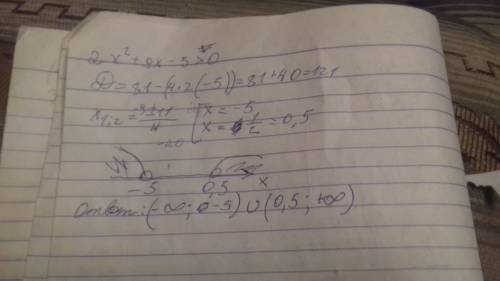 2x² + 9x - 5 > 0
D = 81 - (4·2(-5)) = 81 + 40 = 121
x₁;₂ = -9±11/4 [x = -5
x = 1/2 = 0,5
-5 0,5 x
Ответ: (-∞; -5) ∪ (0,5; +∞)